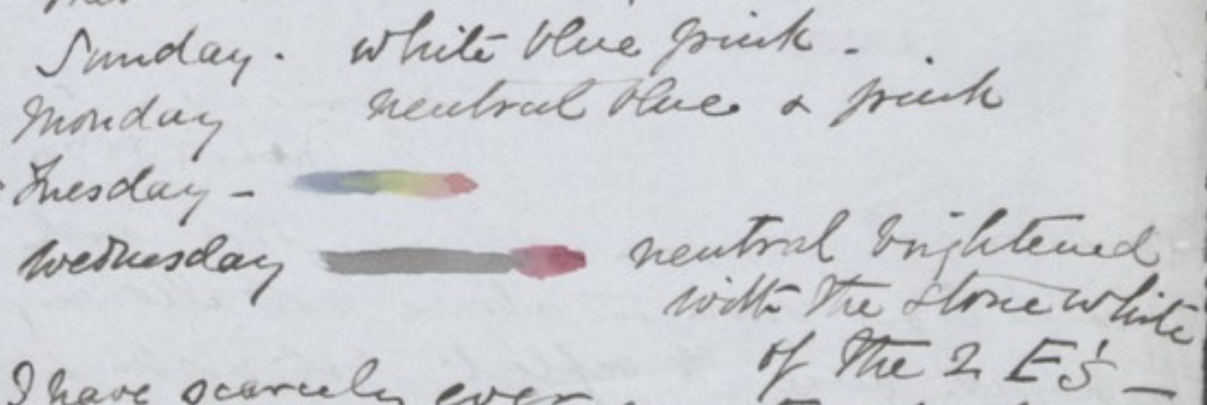 Sunday. white blue pink.
Monday neutral blue & pink
Tuesday -
Wednesday neutral brightened
with the stone white
of the 2 E's -
I have scarcely ever